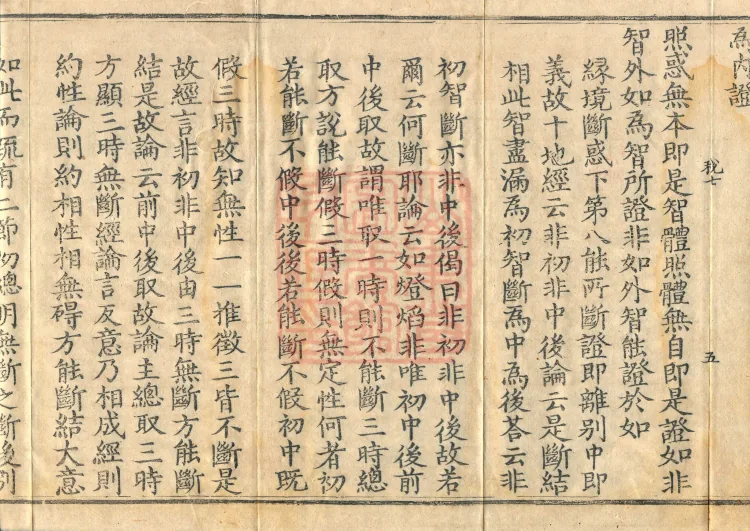 為內證
照惑無本即是智體照體無自即是證如非
智外如為智所證非如外智能證於如
緣境斷惑下第八能所斷證即離別中即
義故十地經云非初非中後論云是斷結
相此智盡漏為初智斷為中為後荅云非
初智斷亦非中後偈曰非初非中後故若
爾云何斷耶論云如燈焰非唯初中後前
中後取故謂唯取一時則不能斷三時總
取方說能斷假三時假則無定性何者初
若能斷不假中後後若能斷不假初中既
假三時故知無性一一推徵三皆不斷是
故經言非初非中後由三時無斷方能斷
結是故論云前中後取故論主總取三時
方顯三時無斷經論言反意乃相成經則
約性論則約相性相無碍方能斷結大意
如此而疏有二節初總明無斷之斷後別
五